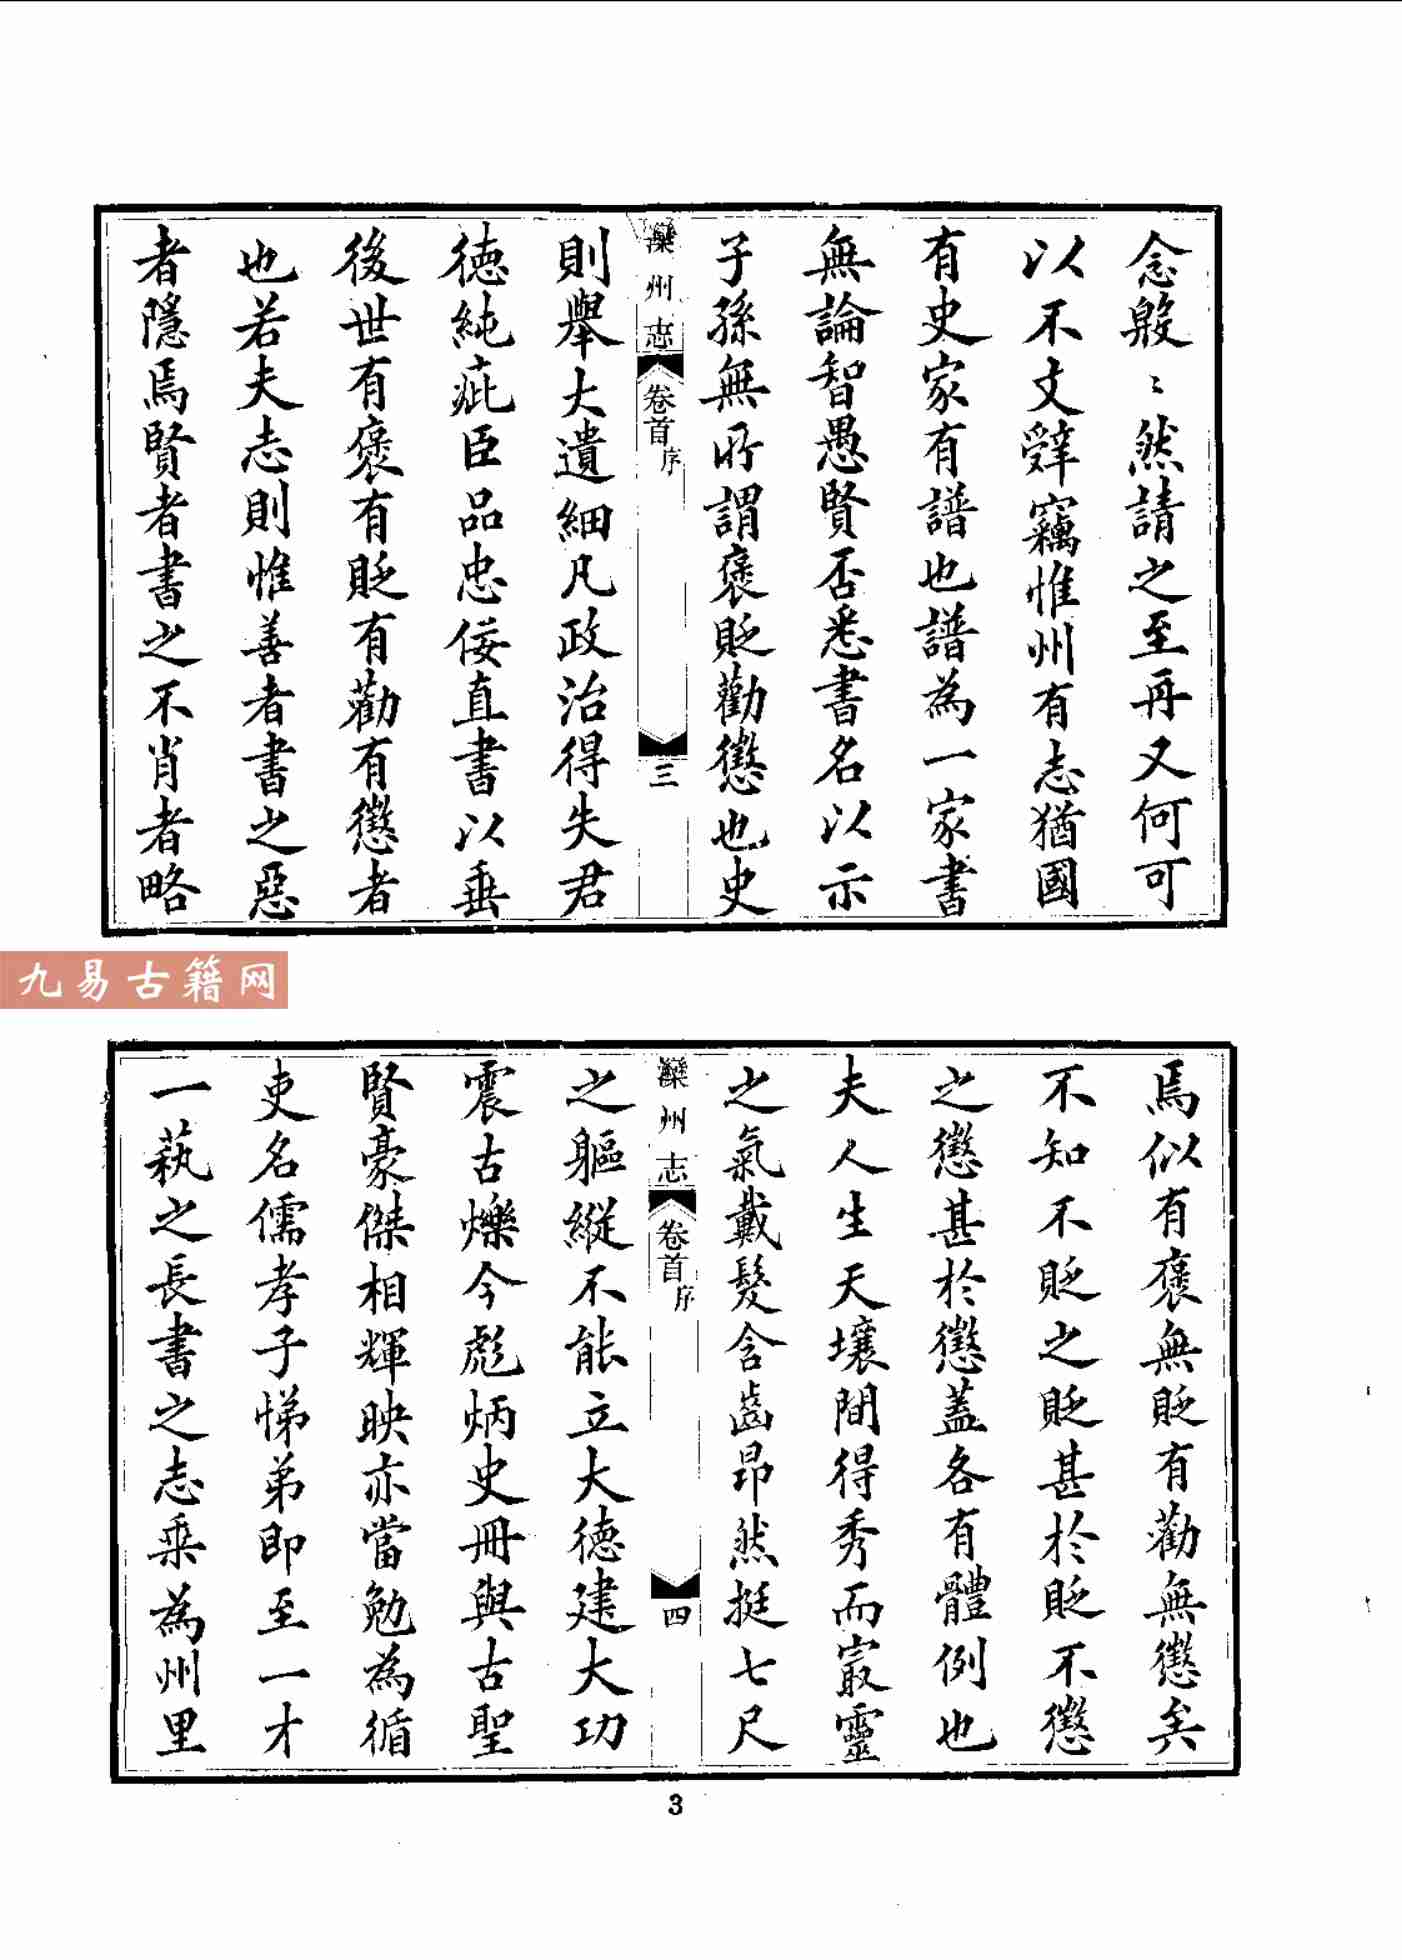 念殷〻然請之至再又何可
以不文辭竊惟州有志猶國
有史家有譜也譜為一家書
無論智愚賢否悉書名以示
子孫無所謂褒貶勸懲也史
灤州志 卷首 序 三
則舉大遺細凡政治得失君
德純疵臣品忠佞直書以垂
後世有褒有貶有勸有懲者
也若夫志則惟善者書之惡
者隱焉賢者書之不肖者略
九易古籍网
焉似有褒無貶有勸無懲矣
不知不貶之貶甚於貶不懲
之懲甚於懲蓋各有體例也
夫人生天壤間得秀而最靈
之氣戴髮含齒昂然挺七尺
灤州志 卷首 序 四
之軀縱不能立大德建大功
震古爍今彪炳史冊與古聖
賢豪傑相輝映亦當勉為循
吏名儒孝子悌弟即至一才
一萟之長書之志乘為州里
3